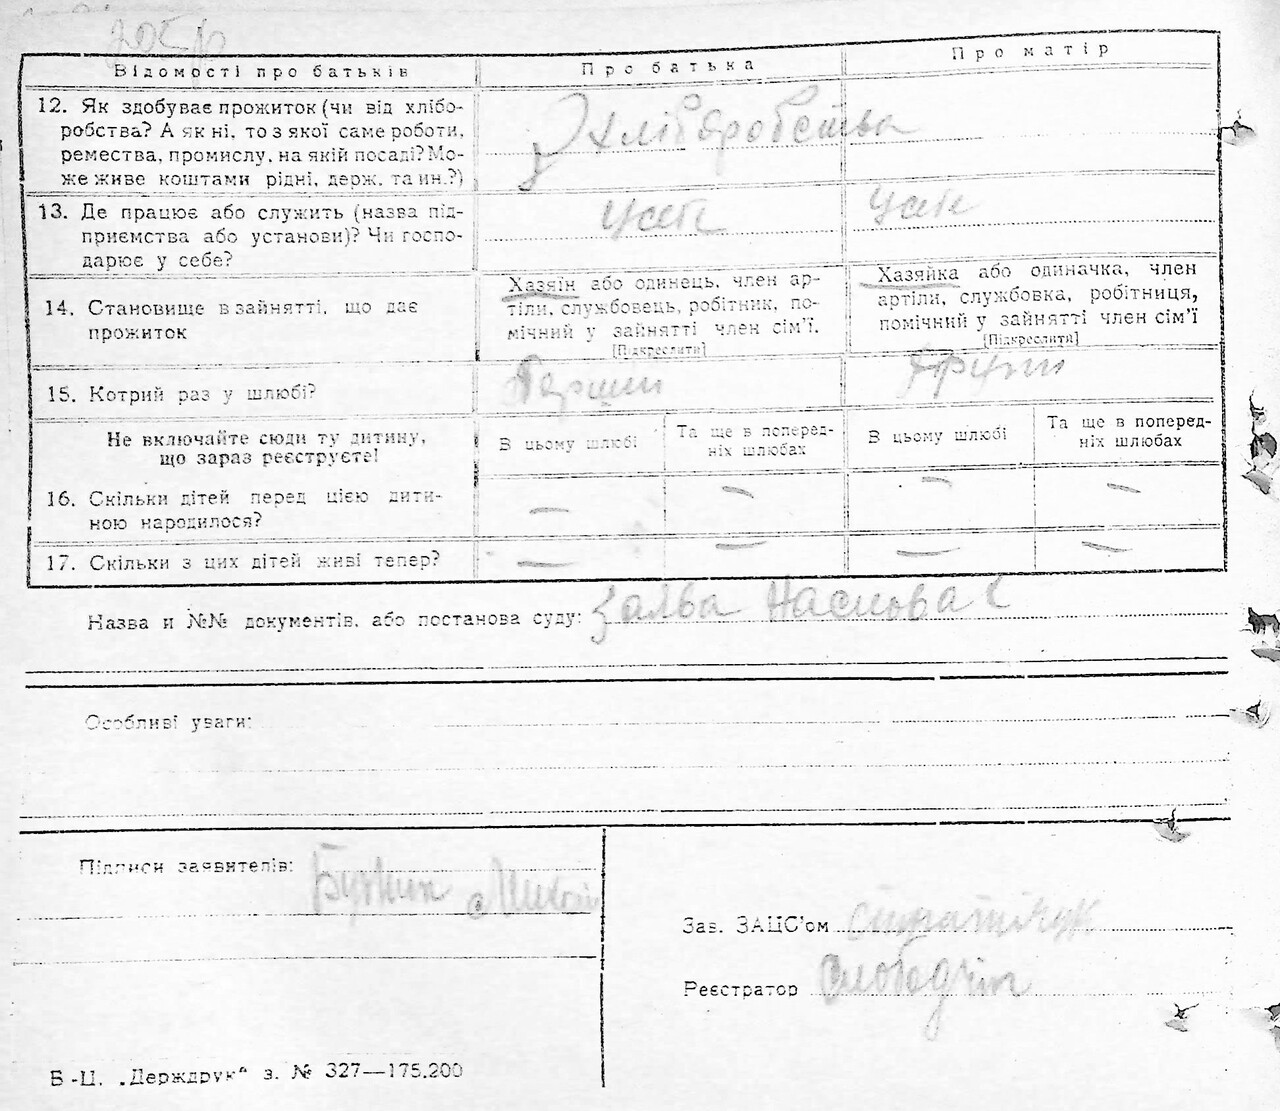 Відомості про батьків
Про батька
Про матір
12. Як здобуває прожиток (чи від хлібо-
робства? А як ні, то з якої саме роботи,
ремества, промислу, на якій посаді? Мо-
же живе коштами рідні, держ. та ин.?)
З хліборобства
13. Де працює або служить (назва під-
приємства або установи)? Чи госпо-
дарює у себе?
У себе
У себе
14. Становище в зайнятті, що дає
прожиток
Хазяїн або одинець, член ар-
тіли, службовець, робітник, по-
мічний у зайнятті член сім'ї.
[Підкреслити]
Хазяйка або одиначка, член
артіли, службовка, робітниця,
помічний у зайнятті член сім'ї
[Підкреслити]
15. Котрий раз у шлюбі?
Перший
Не включайте сюди ту дитину,
що зараз реєструєте!
В цьому шлюбі
Та ще в поперед-
ніх шлюбах
В цьому шлюбі
Та ще в поперед-
ніх шлюбах
16. Скільки дітей перед цією дити-
ною народилося?
— — — —
17. Скільки з цих дітей живі тепер?
— — — —
Назва и №№ документів, або постанова суду:
Особливі уваги:
Підписи заявителів:
Зав. ЗАЦС'ом
Реєстратор
Б-Ц. „Держдрук" з. № 327—175.200